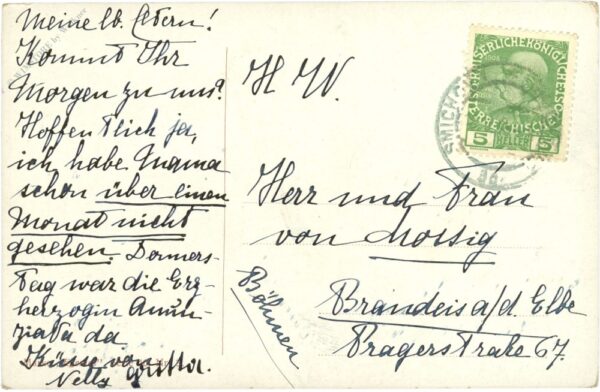 Meine lb. Eltern!
Kommt Ihr
Morgen zu uns?
Hoffentlich ja,
ich habe Mama
schon über einen
Monat nicht
gesehen. Donners-
tag war die Erz-
herzogin Anun-
ziata da.
Küsse von
Nelly
H W.
Herr und Frau
von Mossig
Brandeis a/d Elbe
Pragerstraße 67.
Böhmen
KAISERLICHEKÖNIGLICHE
ÖSTERREICHISCHE
5 HELLER 5
SMICHO